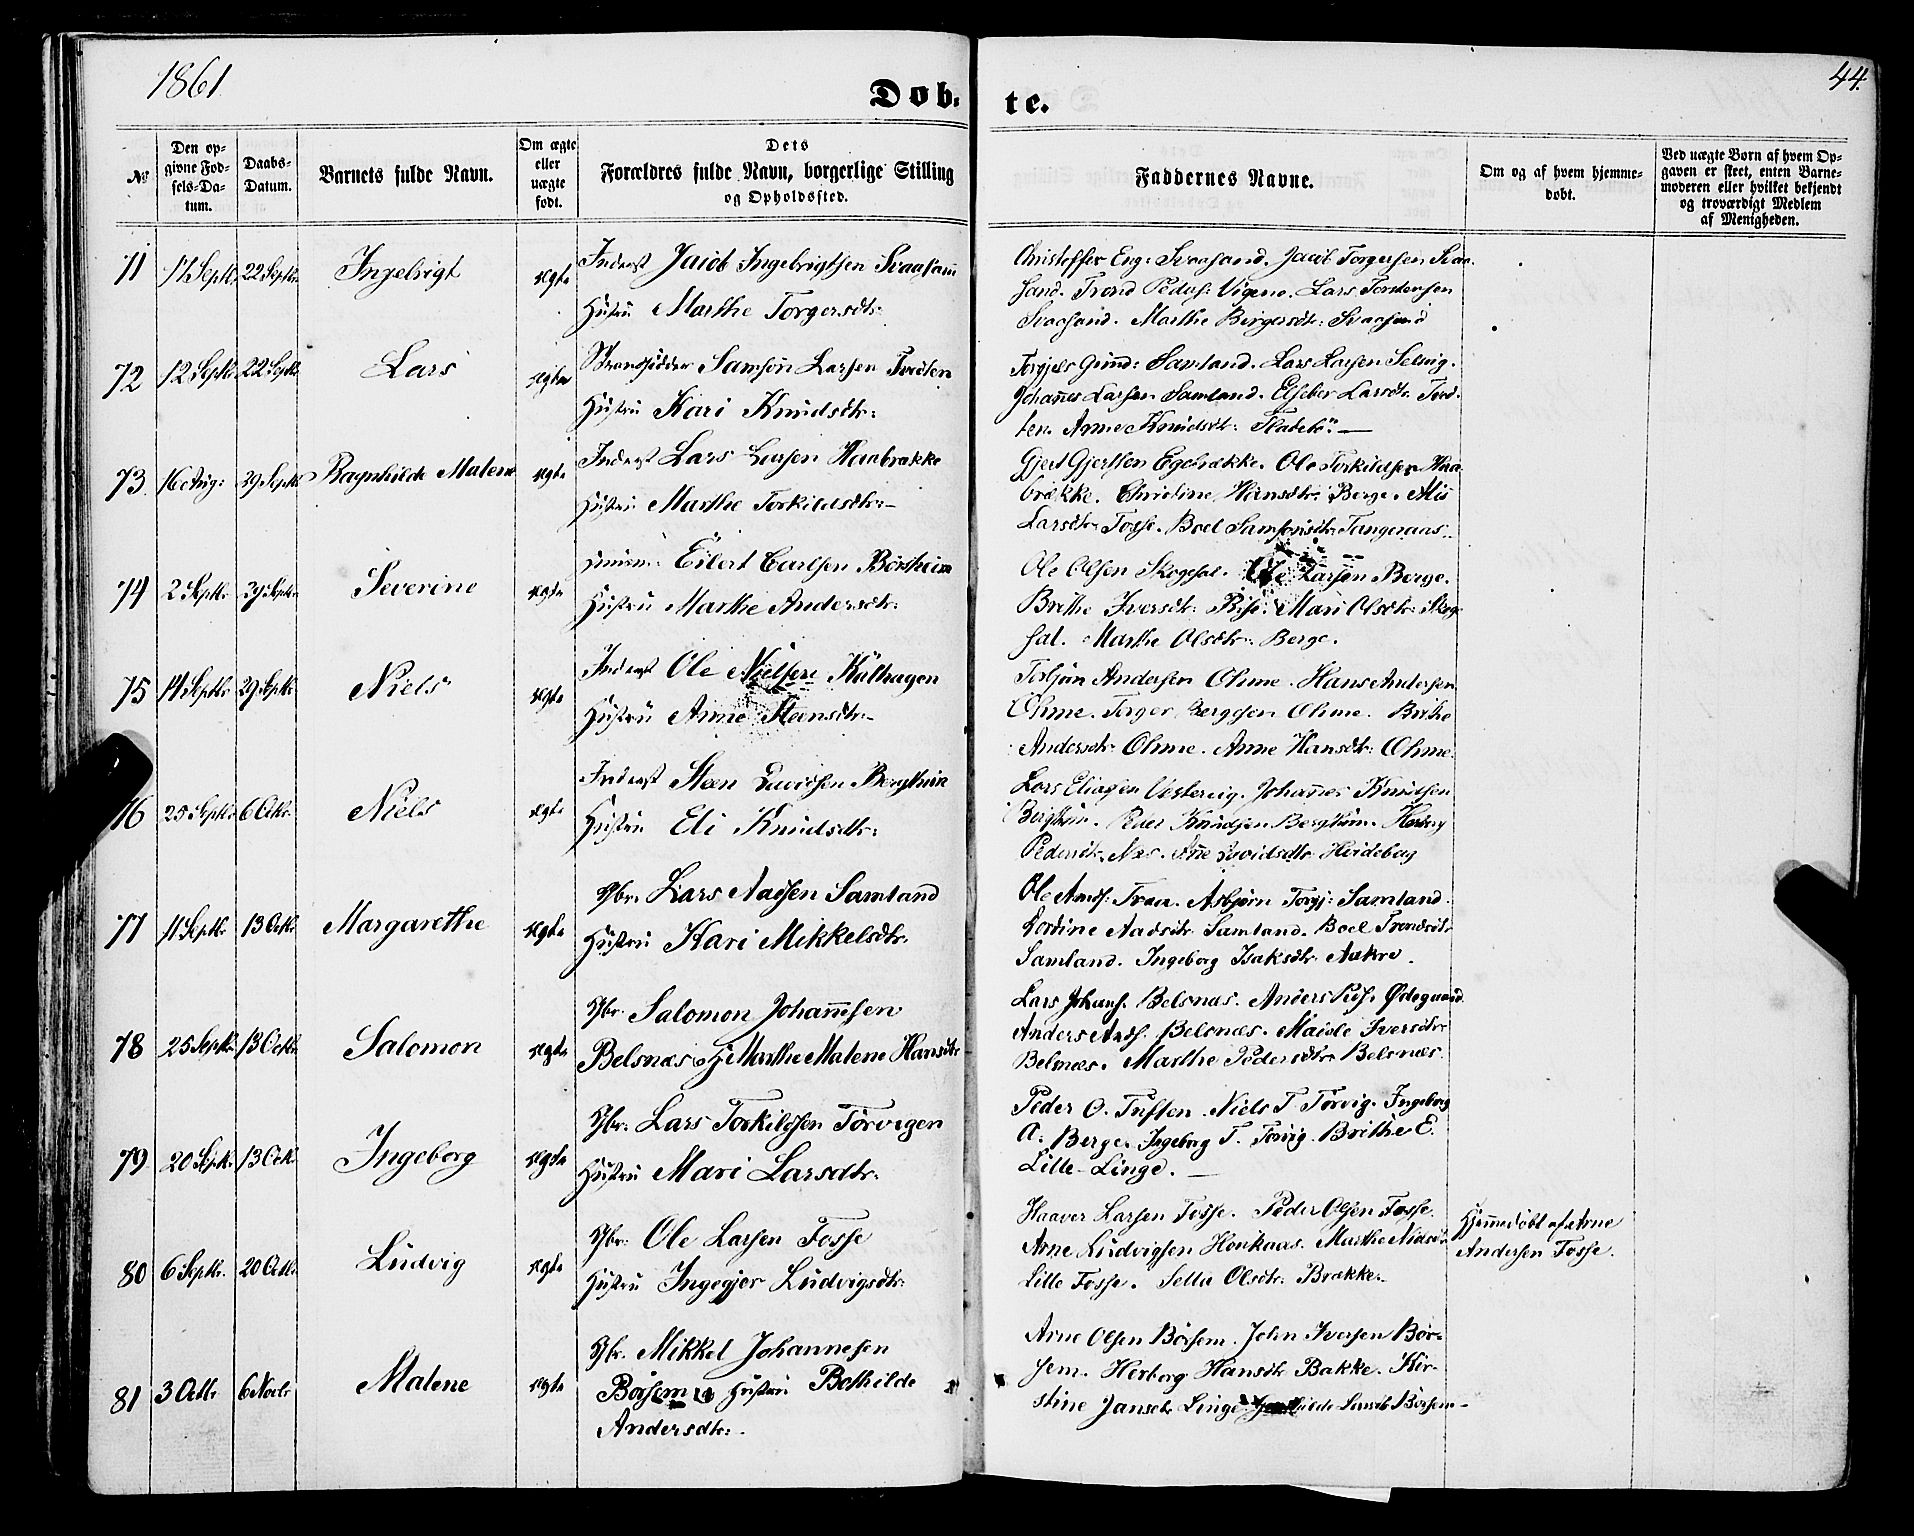 1861
44.
Døb-
te.
№
Den op-
givne Fød-
sels-Da-
tum.
Daabs-
Datum.
Barnets fulde Navn.
Om ægte
eller
uægte
født.
Dets
Forældres fulde Navn, borgerlige Stilling
og Opholdssted.
Faddernes Navne.
Om og af hvem hjemme-
døbt.
Ved uægte Børn af hvem Op-
gaven er skeet, enten Barne-
moderen eller hvilket bekjendt
og troværdigt Medlem
af Menigheden.
71 22 Septbr. Ingebrigt ægte
Inderst Jacob Ingebrigtsen Svaasand
Hustru Marthe Torgersdtr.
Christoffer Eng: Svaasand. Jacob Torgersen Svaa-
sand. Trond Peders: Lars Torstensen
Svaasand. Marthe Birgersdtr: Svaasand
72 12 Septbr 22 Septbr. Lars ægte
Strandsidder Samson Larsen
Hustru Kari Knudsdtr:
Samland. Lars Larsen Selvig.
Johannes Larsen Samland. Elseber Larsdtr.
Anne Knudsdtr:
73 16 Aug: 29 Septbr Ragnhilde Malene ægte
Inderst Lars Larsen Haabrække
Hustru Marthe Torkildsdtr:
Gjert Gjertsen Ole Torkildsen Haa-
brække. Christine Hansdtr: Berge.
Larsdtr: Fosse. Boel Samsonsdtr: Tangeraas.
74 2 Septbr 29 Septbr Severine ægte
Eilert Carlsen Børsheim
Hustru Marthe Andersdtr:
Ole Olsen Skogsal. Ole Larsen Berge.
Brithe Iversdtr: Mari Olsdtr: Skog-
sal. Marthe Olsdtr: Berge.
75 14 Septbr 29 Septbr Niels ægte
Inderst Ole Nielsen Kalhagen
Hustru Anne Steensdtr:
Torbjørn Andersen Ohme. Hans Andersen
Ohme. Torger Ohme. Brithe
Andersdtr: Ohme. Anne Hansdtr: Ohme.
76 25 Septbr 6 Octbr. Niels ægte
Inderst Steen Davidsen Bergthun
Hustru Eli Knudsdtr:
Lars Eliasen Johannes Knudsen
Bergthun. Peder Knudsen Bergthun. Herborg
Pedersdtr. Næs. Davidsdtr
77 11 Septbr 13 Octbr. Margarethe ægte
Gbr. Lars Aadsen Samland
Hustru Kari Mikkelsdtr.
Ole Asbjørn Samland.
Aadsdtr. Samland. Boel Trondsdtr
Samland. Ingeborg Isaksdtr. Aakre.
78 25 Septbr 13 Octbr. Salomon ægte
Gbr. Salomon Johannesen
Belsnæs Marthe Malene Hansdtr
Lars Johans. Belsnæs. Anders Ødegaard
Anders Belsnæs. Iversdtr
Belsnæs. Marthe Pedersdtr. Belsnæs.
79 20 Septbr. 13 Octbr. Ingeborg ægte
Gbr. Lars Torkildsen Tørvigen
Hustru Mari Larsdtr.
Peder O. Tuften. Niels T. Tørvig. Ingeborg
A. Berge. Ingeborg T. Tørvig. Brithe E.
Lille-Linge.
80 6 Septbr. 20 Octbr. Ludvig ægte
Gbr. Ole Larsen Fosse
Hustru Ingegjer Ludvigsdtr.
Haaver Larsen Fosse. Peder Olsen Fosse.
Arne Ludvigsen Marthe
Lille Fosse. Olsdtr. Brække.
Hjemmedøbt af Arne
Andersen Fosse.
81 3 Octbr 6 Novbr Malene ægte
Gbr. Mikkel Johannesen
Børsem Hustru Bothilde
Andersdtr.
Arne Olsen Børsem. John Iversen Bør-
sem. Herborg Hansdtr Bakke. Kir-
stine Jansdtr Linge. Børsem.